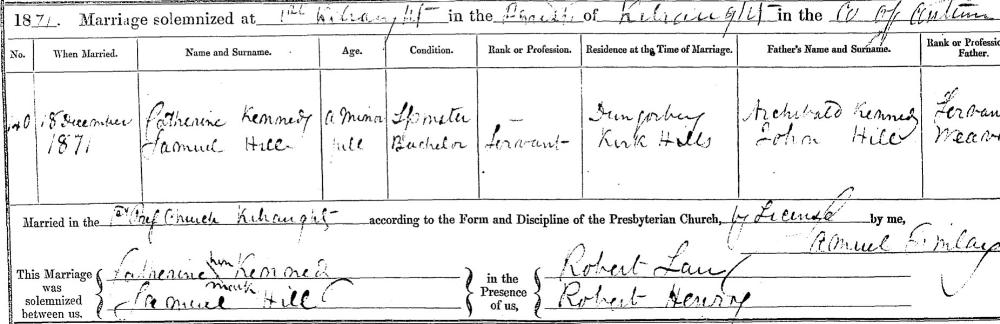 1871. Marriage solemnized at 1st Kilraughts in the Parish of Kilraughts in the Co of Antrim
No. When Married. Name and Surname. Age. Condition. Rank or Profession. Residence at the Time of Marriage. Father's Name and Surname. Rank or Profession Father.
18 December Catherine Kennedy a Minor Spinster — Dungorbery Archibald Kennedy Servant
1871 Samuel Hill full Bachelor Servant Kirk Hills John Hill Weaver
Married in the 1st Pres Church Kilraughts according to the Form and Discipline of the Presbyterian Church, by License by me,
Samuel Finlay
This Marriage was solemnized between us,
Catherine her Kennedy
mark
Samuel Hill
in the Presence of us,
Robert
Robert